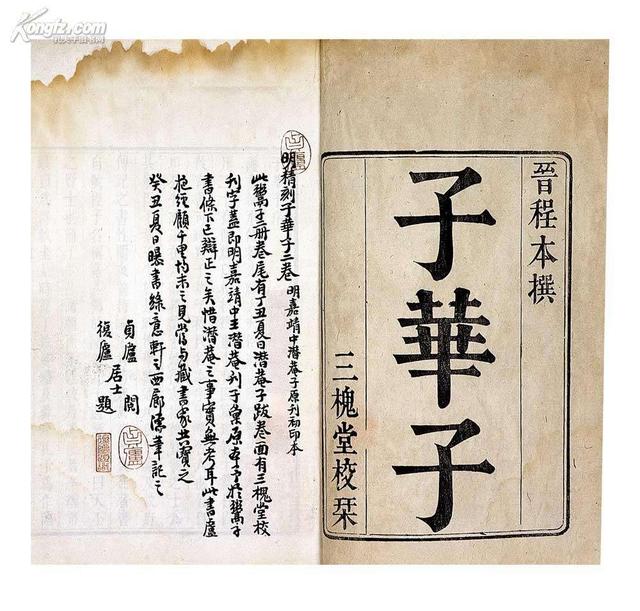 Kongfz.com
孔夫子旧书网
晉程本撰
子華子
三槐堂校栞
明精刻子華子二卷 明嘉靖中潛菴子原刊初印本
此鬻子二册卷尾有丁丑夏日潛菴子跋卷面有三槐堂校
刊字蓋即明嘉靖中王潛菴刊于原本予於鬻子
書條下已辯正之矣惜潛菴之事實無考耳此書盧
抱經顧千里均未之見當与藏書家共寶之
癸丑夏日曝書綠意軒之西廊漫筆記之
貞廬 閱
復廬 居士 題